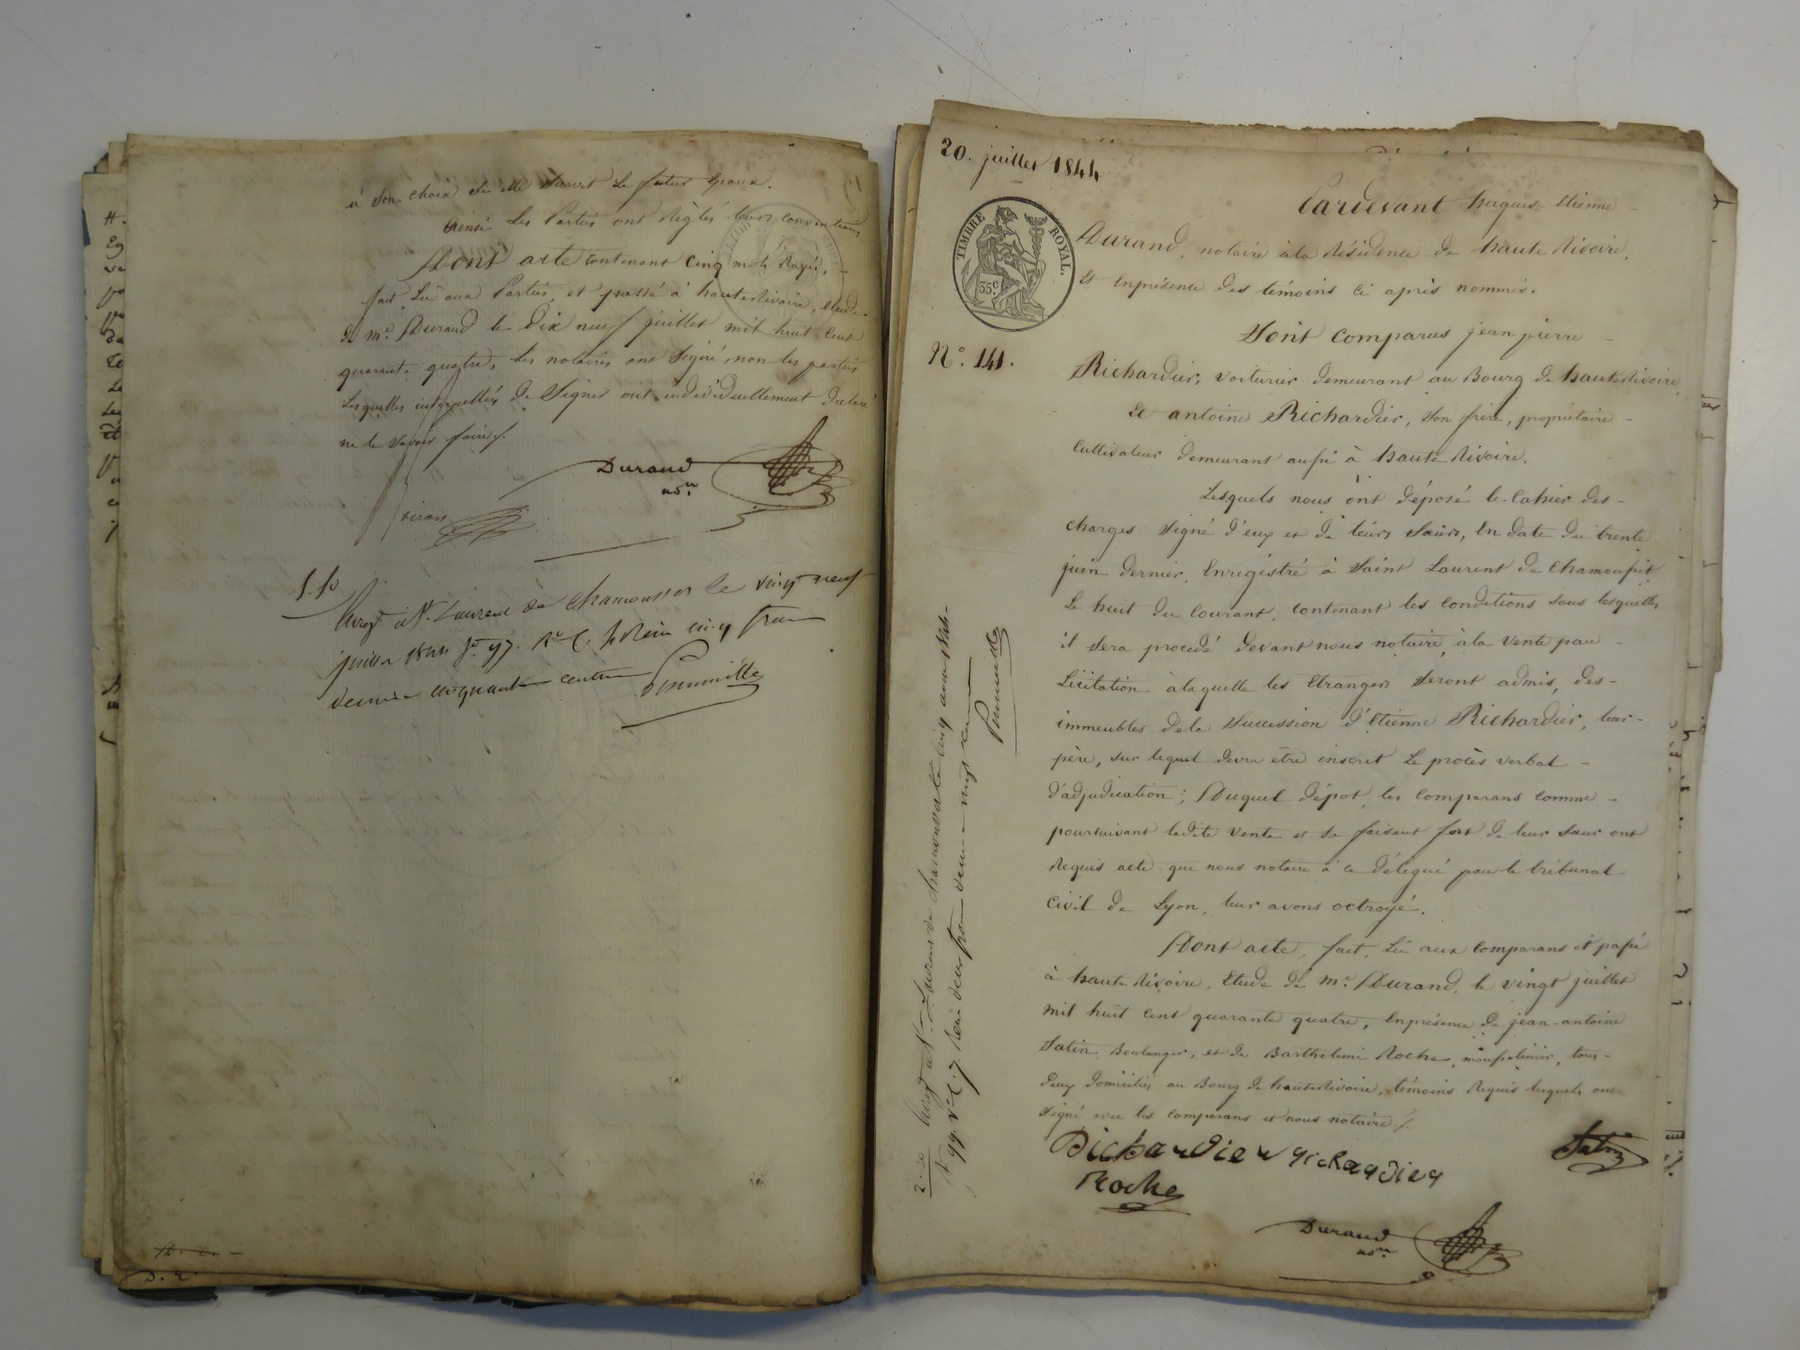 à son choix si elle survit le futur époux.
Ainsi les Parties ont réglés leurs conventions
Dont acte contenant cinq mots rayés,
fait, lu aux Parties, et passé à hauterivoire, étude
de me. Durand le dix neuf juillet mil huit cent
quarante quatre, les notaires ont signé, non les parties
lesquelles interpellées de signer ont individuellement déclaré
ne le savoir faire /.
Durand
nore.
5.50
Enregt à St. Laurent de Chamousset le vingt neuf
juillet 1844 fo. 97. Vo C. reçu cinq francs
décime cinquante centimes
20. juillet 1844
TIMBRE ROYAL.
35c
No. 141.
Pardevant hugues Etienne
Durand, notaire à la Résidence de haute Rivoire,
Et en présence des témoins ci après nommés.
Sont comparus jean pierre
Richardier, voiturier demeurant au Bourg de hauteRivoire
Et antoine Richardier, son frère, propriétaire
cultivateur demeurant aussi à haute Rivoire.
Lesquels nous ont déposé le Cahier des
charges signé d'eux et de leurs sœurs, en date du trente
juin dernier, Enregistré à Saint Laurent de Chamousset
le huit du courant, contenant les conditions sous lesquelles
il sera procédé devant nous notaire, à la vente par
Licitation à laquelle les Etrangers seront admis, des
immeubles de la succession d'Etienne Richardier, leur
père, sur lequel devra être inscrit le procès verbal
d'adjudication; Duquel dépot, les comparans comme
poursuivant ladite vente et se faisant fort de leur sœur ont
Requis acte que nous notaire à ce délégué par le tribunal
Civil de Lyon, leur avons octroyé.
Dont acte, fait, lu aux comparans et passé
à haute Rivoire, Etude de me. Durand, le vingt juillet
mil huit cent quarante quatre, en présence de jean-antoine
Satin Boulanger, et de Barthelemi Roche, tous
deux domiciliés au Bourg de hauteRivoire, témoins Requis lesquels ont
signé avec les comparans et nous notaire /.
Richardier richardier
Satin
Roche
Durand
nore.
2.20 Enregt à St. Laurent de chamousset le cinq aout 1844
fo 99. Vo C. 7. Reçu deux francs décime vingt centimes